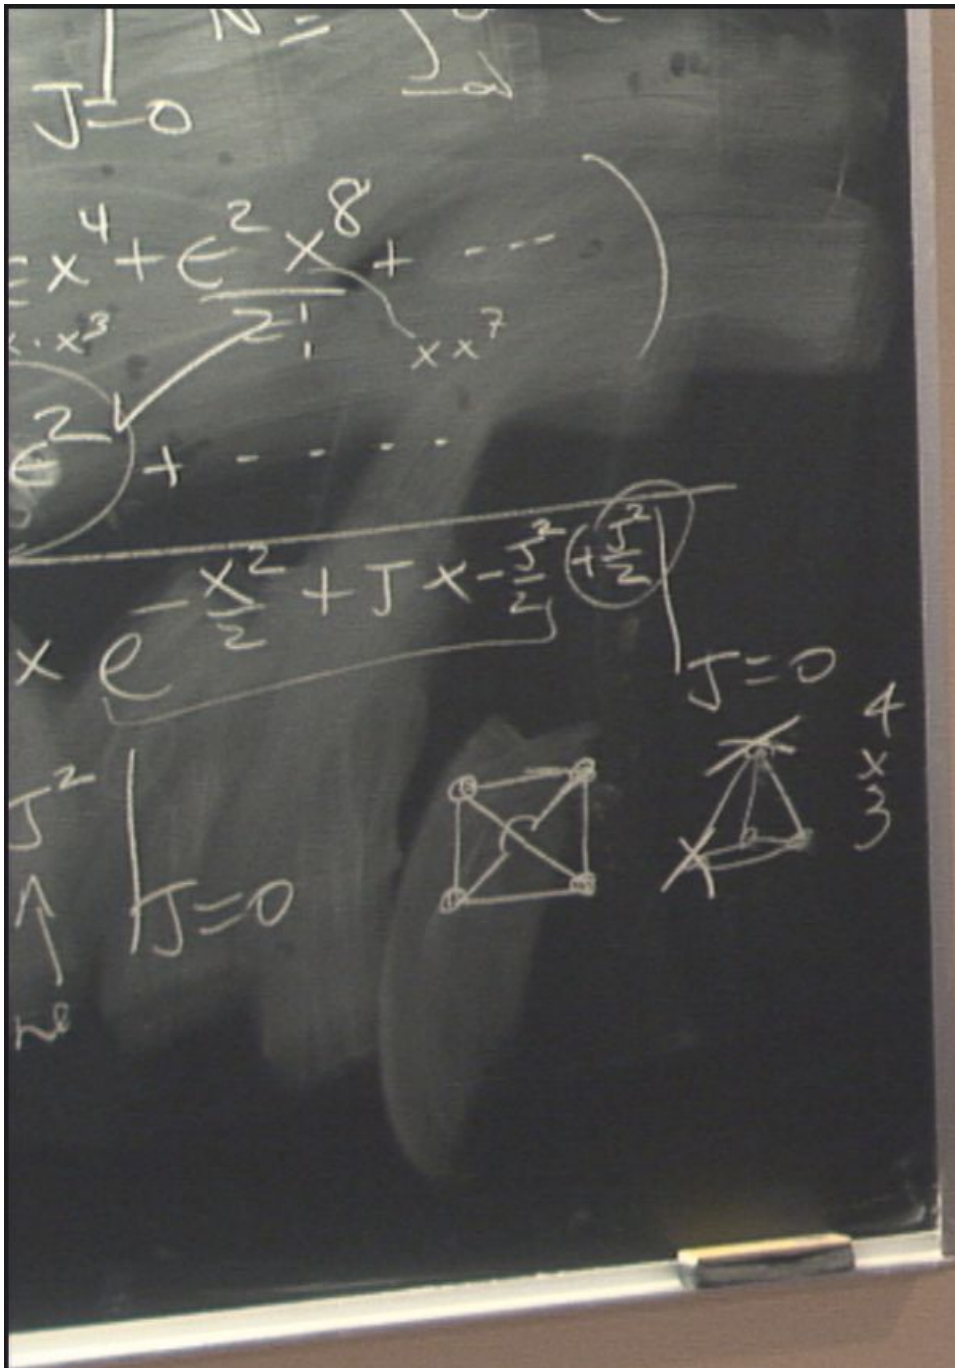 N = ∫
J=0
εx⁴ + ε² x⁸ / 2! + ---
x · x³
x x⁷
ε² + - - - - -
x e^{-x²/2 + Jx - J²/2 + J²/2} |
J=0
J² | J=0
4
x
3